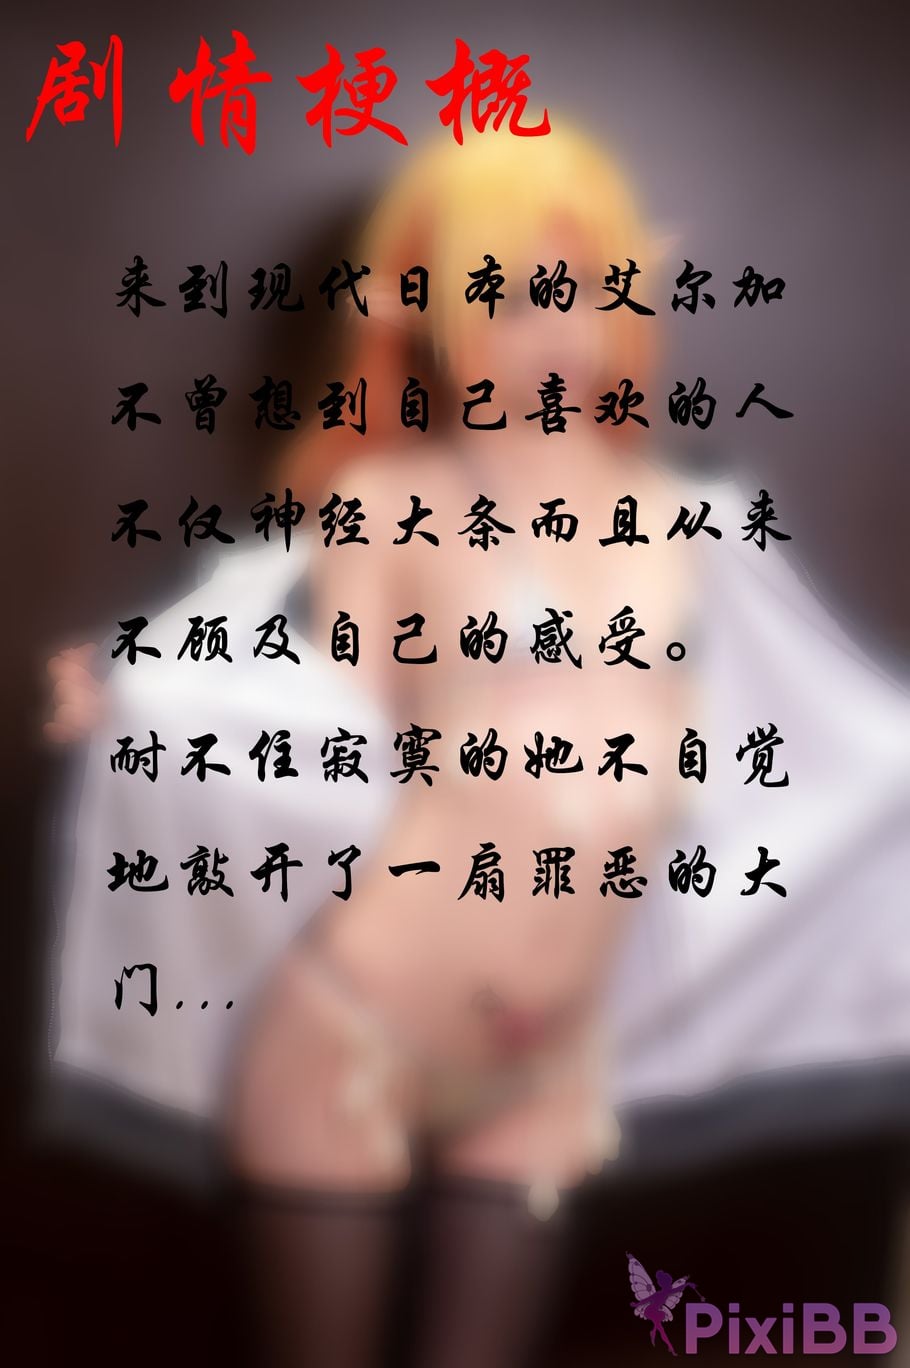 剧情梗概
来到现代日本的艾尔加
不曾想到自己喜欢的人
不仅神经大条而且从来
不顾及自己的感受。
耐不住寂寞的她不自觉
地敲开了一扇罪恶的大
门...
PixiBB